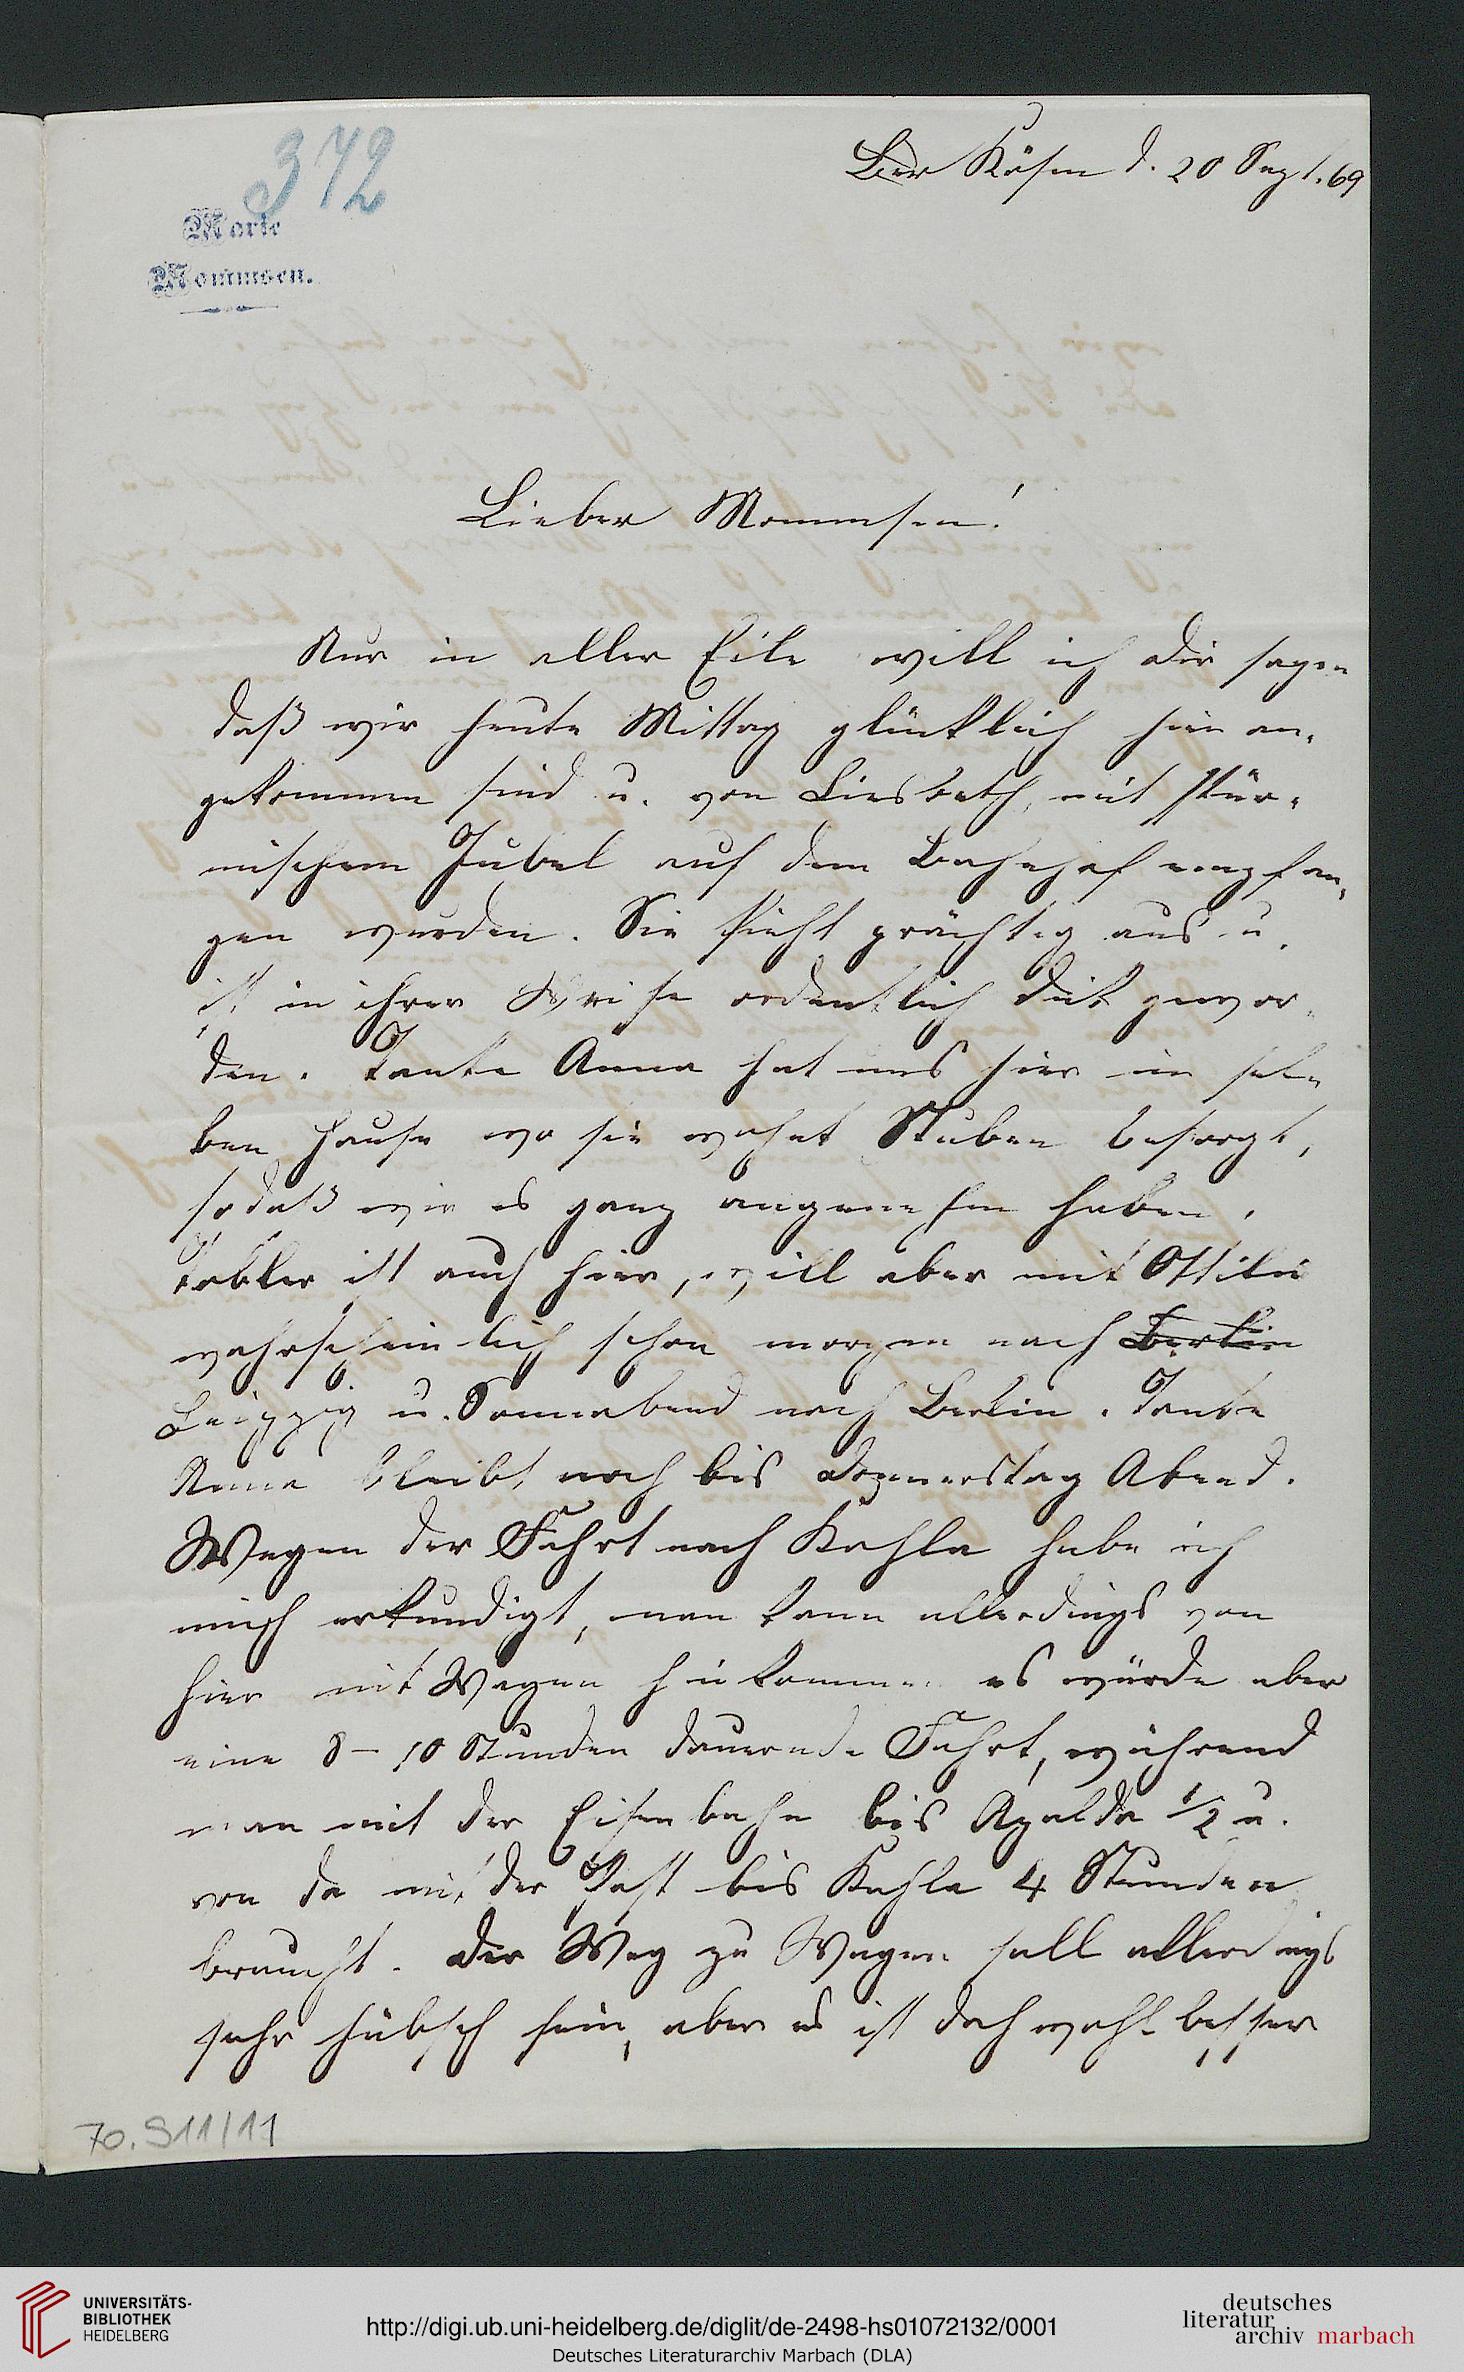 372
Marie
Mommsen.
Ber Kösen d. 20 Sept. 69
Lieber Mommsen!
Nur in aller Eile will ich dir sagen
daß wir heute Mittag glücklich hier an-
gekommen sind u. von Liesbeth, mit stür-
mischem Jubel auf dem Bahnhof empfan-
gen wurden. Sie sieht prächtig aus u.
ist in ihrer Weise ordentlich dick gewor-
den. Tante Anna hat uns hier im sel-
ben Hause wo sie wohnt Stuben besorgt,
sodaß wir es ganz angenehm haben.
Tobler ist auch hier, will aber mit Ottilie
wahrscheinlich schon morgen nach Berlin
Leipzig u. Sonnabend nach Berlin. Tante
Anna bleibt noch bis Donnerstag Abend.
Wegen der Fahrt nach Kahla habe ich
mich erkundigt, man kann allerdings von
hier mit Wagen hinkommen es würde aber
eine 8-10 Stunden dauernde Fahrt, während
man mit der Eisenbahn bis Apolda 1/2 u.
von da mit der Post bis Kahla 4 Stunden
braucht. Der Weg zu Wagen soll allerdings
sehr hübsch sein, aber es ist doch wohl besser
70.911/11
UNIVERSITÄTS-
BIBLIOTHEK
HEIDELBERG
http://digi.ub.uni-heidelberg.de/diglit/de-2498-hs01072132/0001
Deutsches Literaturarchiv Marbach (DLA)
deutsches
literatur
archiv marbach